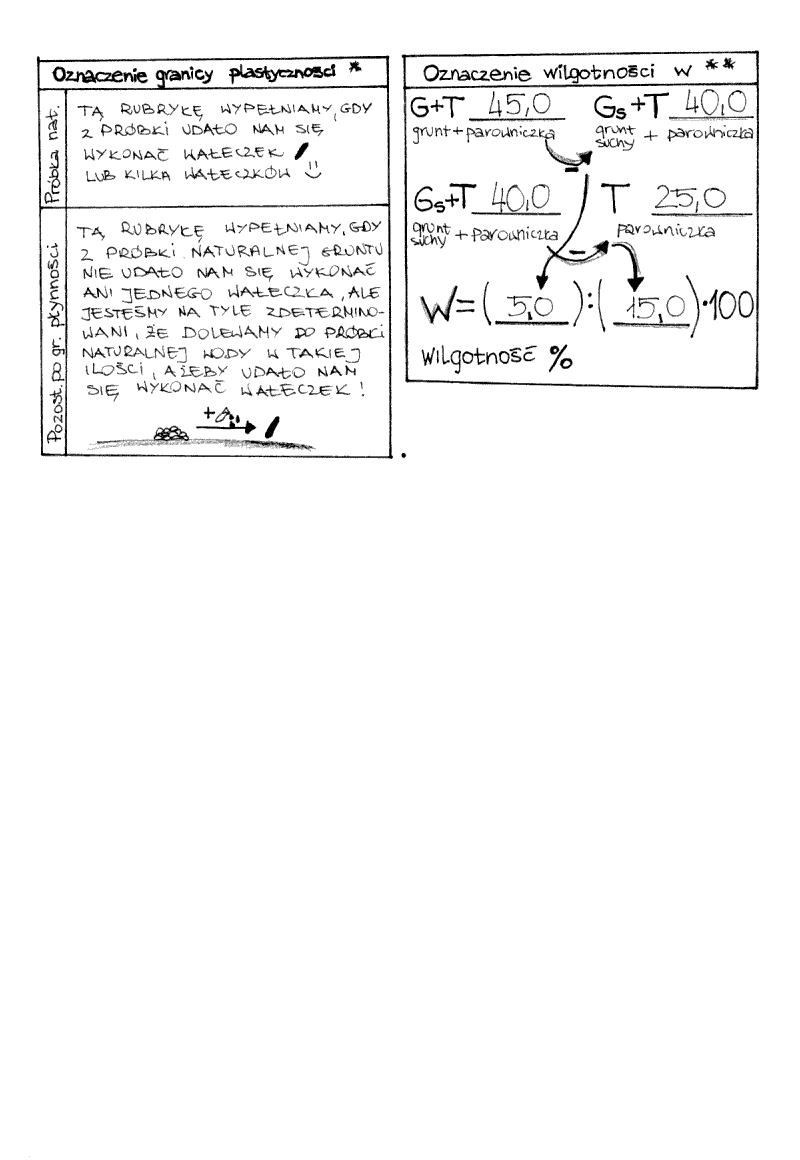 Oznaczenie granicy plastyczności *
Próbka nat.
TĄ RUBRYKĘ WYPEŁNIAMY, GDY
Z PRÓBKI UDAŁO NAM SIĘ
WYKONAĆ WAŁECZEK
LUB KILKA WAŁECZKÓW
Pozost. po gr. płynności
TĄ RUBRYKĘ WYPEŁNIAMY, GDY
Z PRÓBKI NATURALNEJ GRUNTU
NIE UDAŁO NAM SIĘ WYKONAĆ
ANI JEDNEGO WAŁECZKA, ALE
JESTEŚMY NA TYLE ZDETERMINO-
WANI, ŻE DOLEWAMY DO PRÓBKI
NATURALNEJ WODY W TAKIEJ
ILOŚCI, AŻEBY UDAŁO NAM
SIĘ WYKONAĆ WAŁECZEK!
+
Oznaczenie wilgotności w **
G+T 45,0 Gs+T 40,0
grunt+parowniczka grunt suchy + parowniczka
-
Gs+T 40,0 T 25,0
grunt suchy + parowniczka parowniczka
-
W=(5,0):(15,0)·100
WILGOTNOŚĆ %
.